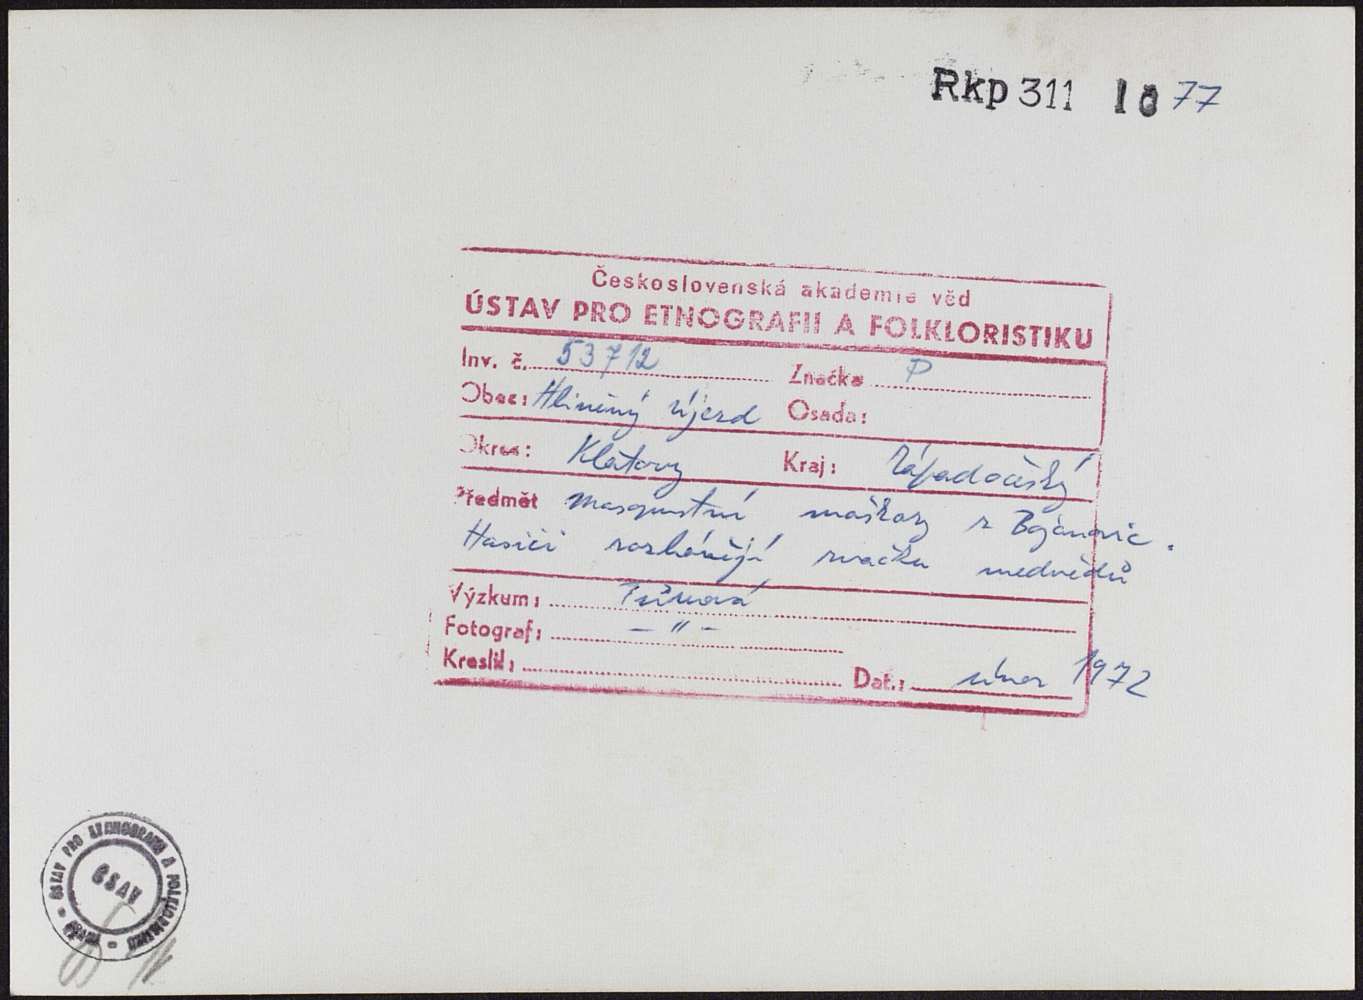 Rkp 311 10 77
Československá akademie věd
ÚSTAV PRO ETNOGRAFII A FOLKLORISTIKU
Inv. č. 53712 Značka P
Obec: Hliněný Újezd Osada:
Okres: Klatovy Kraj: Západočeský
Předmět masopustní maškary z Bojanovic.
Hasiči rozhánějí rvačku medvědů
Výzkum: Tůmová
Fotograf: - " -
Kreslil: Dat.: únor 1972
ÚSTAV PRO ETNOGRAFII A FOLKLORISTIKU
ČSAV